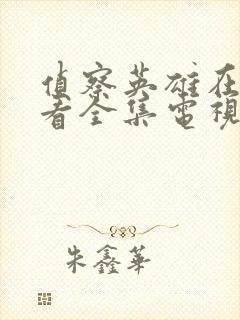 偵察英雄在
看全集電視
朱鑫華